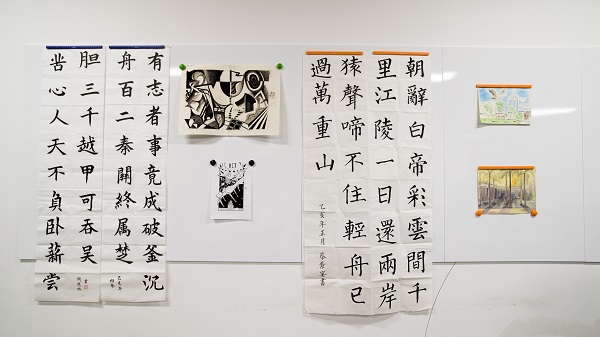 有志者事竟成破釜沉
舟百二秦關終属楚
苦心人天不負卧薪尝
胆三千越甲可吞吴
書
朝辭白帝彩雲間千
里江陵一日還兩岸
猿聲啼不住輕舟已
過萬重山
乙亥年正月 書